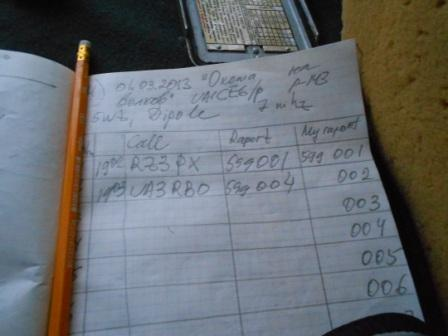 04.03.2013 "Охота
Волков" UA1CEG/p
5wt, Dipole 7 mhz
Call Raport My raport
1902 RZ3PX 599001 599 001
1903 UA3RBO 599 004 002
003
004
005
006